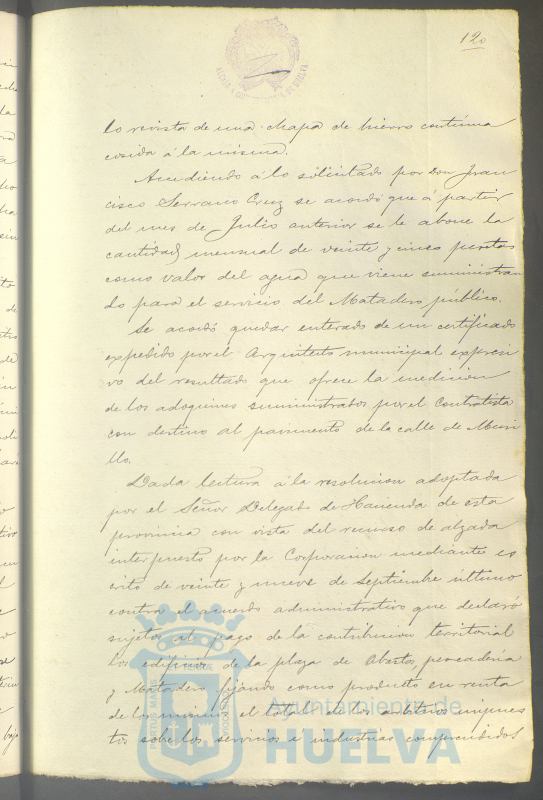 120
lo revista de una chapa de hierro contínua
cosida á la misma.
Accediendo á lo solicitado por don Fran
cisco Serrano Cruz se acordó que á partir
del mes de Julio anterior se le abone la
cantidad mensual de veinte y cinco pesetas
como valor del agua que viene suministran
do para el servicio del Matadero público.
Se acordó quedar enterado de un certificado
expedido por el Arquitecto municipal expresi
vo del resultado que ofrece la medicion
de los adoquines suministrados por el Contratista
con destino al pavimento de la calle de Mori
llo.
Dada lectura á la resolucion adoptada
por el Señor Delegado de Hacienda de esta
provincia con vista del recurso de alzada
interpuesto por la Corporacion mediante es
crito de veinte y nueve de Septiembre último
contra el acuerdo administrativo que declaró
sujetos al pago de la contribucion territorial
los edificios de la plaza de Abastos, pescadería
y Matadero fijando como producto en renta
de los mismos el total de los arbitrios impues
tos sobre los servicios é industrias comprendidos
Ayuntamiento de
HUELVA